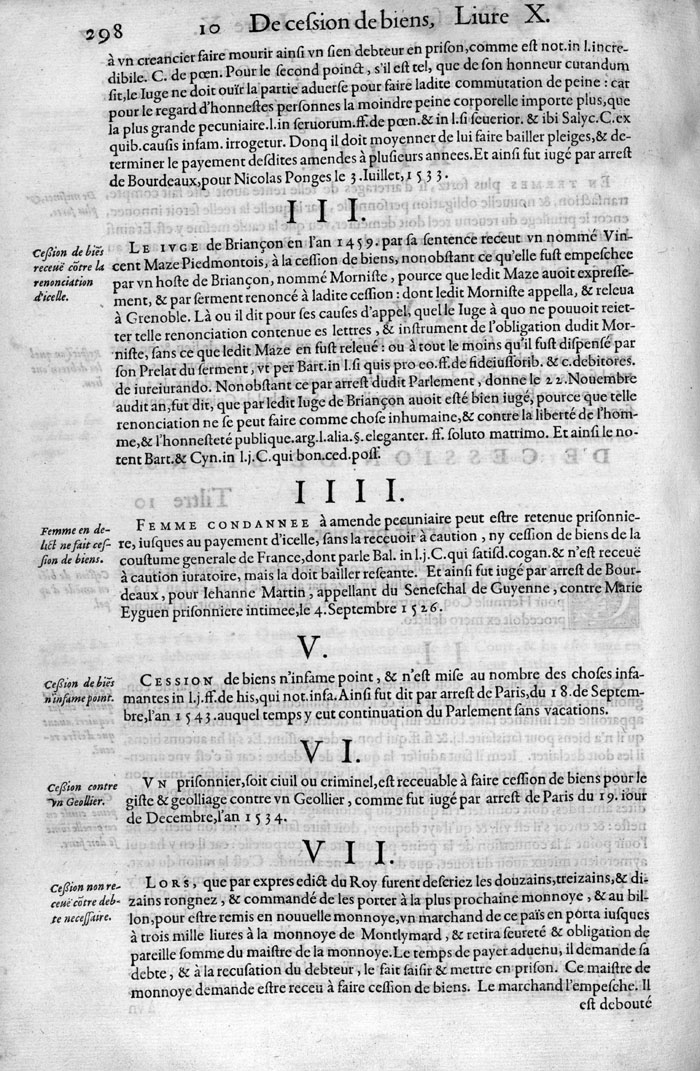 298 10 De ceſsion de biens, Liure X.
à vn creancier faire mourir ainſi vn ſien debteur en priſon, comme eſt not. in l. incre-
dibile. C. de pœn. Pour le ſecond poinct, s'il eſt tel, que de ſon honneur curandum
ſit, le Iuge ne doit ouïr la partie aduerſe pour faire ladite commutation de peine : car
pour le regard d'honneſtes perſonnes la moindre peine corporelle importe plus, que
la plus grande pecuniaire. l. in ſeruorum. ff. de pœn. & in l. ſi ſeuerior. & ibi Salyc. C. ex
quib. cauſis infam. irrogetur. Donq il doit moyenner de lui faire bailler pleiges, & de-
terminer le payement deſdites amendes à pluſieurs annees. Et ainſi fut iugé par arreſt
de Bourdeaux, pour Nicolas Ponges le 3. Iuillet, 1533.
III.
Ceſsion de biẽs
receuë cõtre la
renonciation
d'icelle.
LE IVGE de Briançon en l'an 1459. par ſa ſentence receut vn nommé Vin-
cent Maze Piedmontois, à la ceſſion de biens, nonobſtant ce qu'elle fuſt empeſchee
par vn hoſte de Briançon, nommé Morniſte, pource que ledit Maze auoit expreſſe-
ment, & par ſerment renoncé à ladite ceſſion : dont ledit Morniſte appella, & releua
à Grenoble. Là ou il dit pour ſes cauſes d'appel, quel le Iuge à quo ne pouuoit reiet-
ter telle renonciation contenue es lettres, & inſtrument de l'obligation dudit Mor-
niſte, ſans ce que ledit Maze en fuſt releué : ou à tout le moins qu'il fuſt diſpenſé par
ſon Prelat du ſerment, vt per Bart. in l. ſi quis pro eo. ff. de fideiuſſorib. & c. debitores.
de iureiurando. Nonobſtant ce par arreſt dudit Parlement, donne le 22. Nouembre
audit an, fut dit, que par ledit Iuge de Briançon auoit eſté bien iugé, pource que telle
renonciation ne ſe peut faire comme choſe inhumaine, & contre la liberté de l'hom-
me, & l'honneſteté publique. arg. l. alia. §. eleganter. ff. ſoluto matrimo. Et ainſi le no-
tent Bart. & Cyn. in l. j. C. qui bon. ced. poſſ.
IIII.
Femme en de-
lict ne fait ceſ-
ſion de biens.
FEMME CONDANNEE à amende pecuniaire peut eſtre retenue priſonnie-
re, iuſques au payement d'icelle, ſans la receuoir à caution, ny ceſſion de biens de la
couſtume generale de France, dont parle Bal. in l. j. C. qui ſatiſd. cogan. & n'eſt receuë
à caution iuratoire, mais la doit bailler reſeante. Et ainſi fut iugé par arreſt de Bour-
deaux, pour Iehanne Martin, appellant du Seneſchal de Guyenne, contre Marie
Eyguen priſonniere intimee, le 4. Septembre 1526.
V.
Ceſsion de biẽs
n'infame point.
CESSION de biens n'infame point, & n'eſt miſe au nombre des choſes infa-
mantes in l. j. ff. de his, qui not. infa. Ainſi fut dit par arreſt de Paris, du 18. de Septem-
bre, l'an 1543. auquel temps y eut continuation du Parlement ſans vacations.
VI.
Ceſsion contre
vn Geollier.
VN priſonnier, ſoit ciuil ou criminel, eſt receuable à faire ceſſion de biens pour le
giſte & geolliage contre vn Geollier, comme fut iugé par arreſt de Paris du 19. iour
de Decembre, l'an 1534.
VII.
Ceſsion non re-
ceuë cõtre deb-
te neceſſaire.
LORS, que par expres edict du Roy furent deſcriez les douzains, treizains, & di-
zains rongnez, & commandé de les porter à la plus prochaine monnoye, & au bil-
lon, pour eſtre remis en nouuelle monnoye, vn marchand de ce païs en porta iuſques
à trois mille liures à la monnoye de Montlymard, & retira ſeureté & obligation de
pareille ſomme du maiſtre de la monnoye. Le temps de payer aduenu, il demande ſa
debte, & à la recuſation du debteur, le fait ſaiſir & mettre en priſon. Ce maiſtre de
monnoye demande eſtre receu à faire ceſſion de biens. Le marchand l'empeſche. Il
eſt debouté